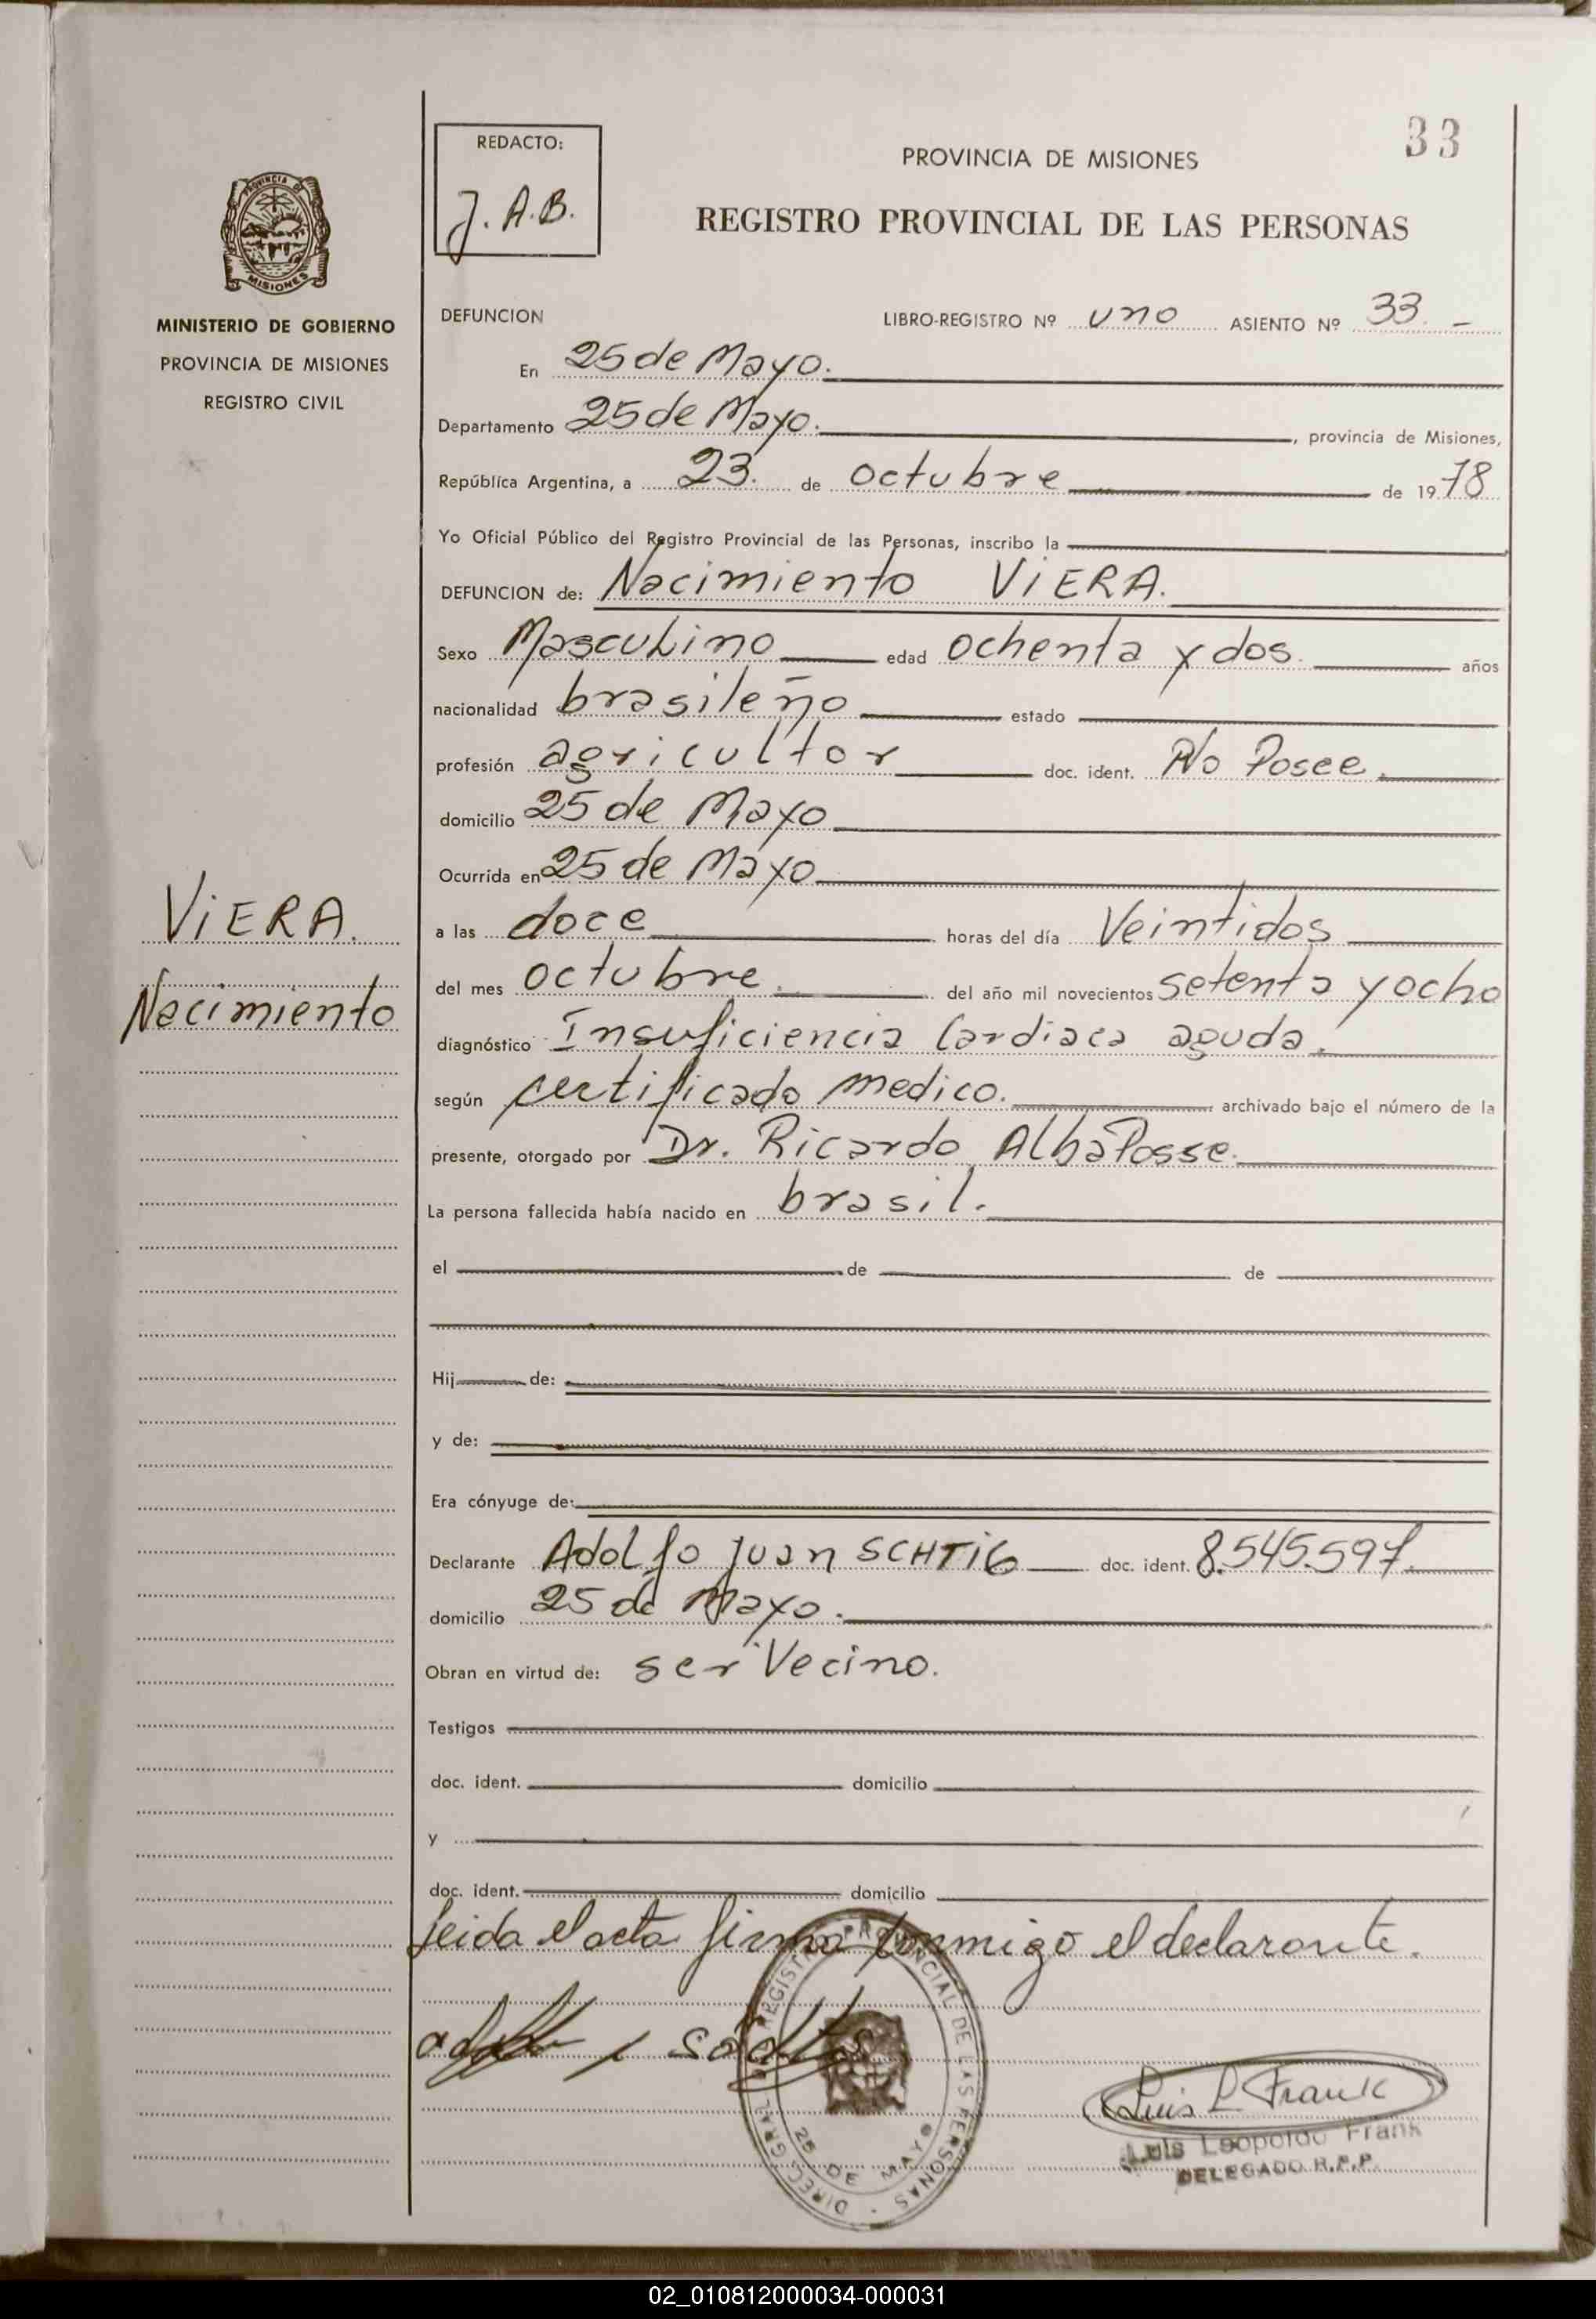 33
REDACTO:
J. A. B.
PROVINCIA DE MISIONES
REGISTRO PROVINCIAL DE LAS PERSONAS
PROVINCIA DE
MISIONES
MINISTERIO DE GOBIERNO
PROVINCIA DE MISIONES
REGISTRO CIVIL
DEFUNCION
LIBRO-REGISTRO Nº uno ASIENTO Nº 33.-
En 25 de Mayo.
Departamento 25 de Mayo. , provincia de Misiones,
República Argentina, a 23. de octubre de 1978
Yo Oficial Público del Registro Provincial de las Personas, inscribo la
DEFUNCION de: Nacimiento ViERA.
Sexo Masculino edad ochenta y dos. años
nacionalidad brasileño estado
profesión agricultor doc. ident. No Posee.
domicilio 25 de Mayo
Ocurrida en 25 de Mayo
a las doce horas del día Veintidos
del mes octubre. del año mil novecientos setenta y ocho
diagnóstico Insuficiencia Cardiaca aguda.
según certificado medico. archivado bajo el número de la
presente, otorgado por Dr. Ricardo AlbaPosse.
La persona fallecida había nacido en brasil.
el de de
Hij de:
y de:
Era cónyuge de:
Declarante Adolfo Juan SCHTiG doc. ident. 8.545.597.
domicilio 25 de Mayo.
Obran en virtud de: ser Vecino.
Testigos
doc. ident. domicilio
y
doc. ident. domicilio
Leida el acta firma conmigo el declarante.
ViERA.
Nacimiento
DIREC. GRAL. REGISTRO PROVINCIAL DE LAS PERSONAS
25 DE MAYO
Luis L Frank
Luis Leopoldo Frank
DELEGADO R.P.P.
02_010812000034-000031